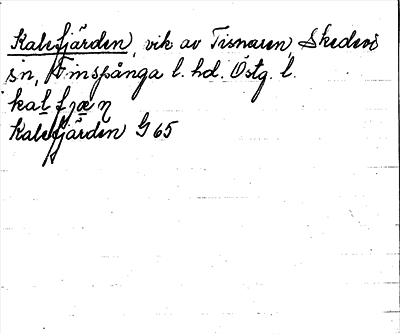 Kalefjärden, vik av Tisnaren, Skedevi
sn, Finspånga l. hd. Östg. l.
Kalefjärden G 65